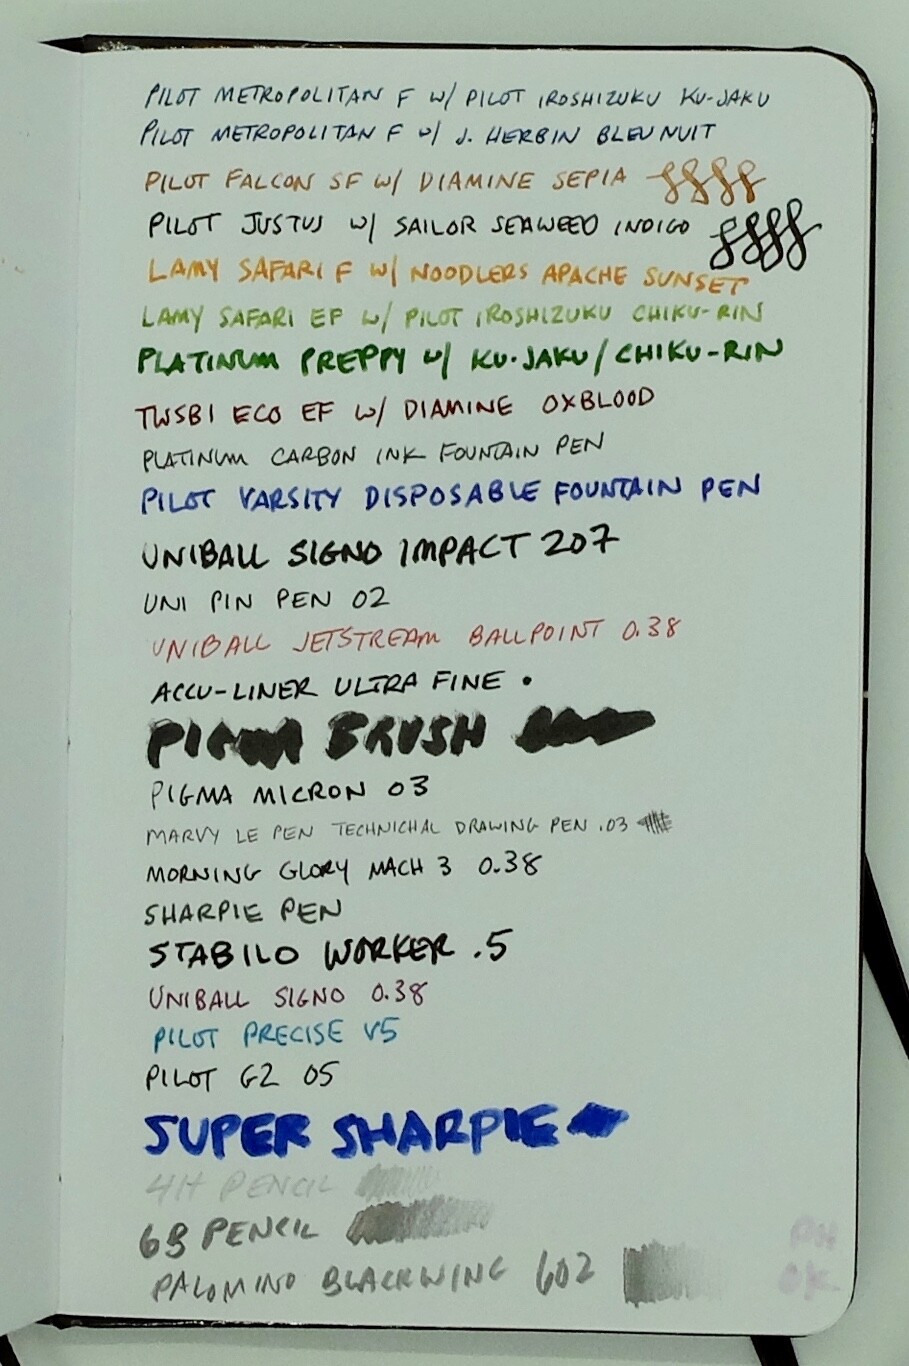 PILOT METROPOLITAN F W/ PILOT IROSHIZUKU KU-JAKU
PILOT METROPOLITAN F W/ J. HERBIN BLEU NUIT
PILOT FALCON SF W/ DIAMINE SEPIA
PILOT JUSTUS W/ SAILOR SEAWEED INDIGO
LAMY SAFARI F W/ NOODLERS APACHE SUNSET
LAMY SAFARI EF W/ PILOT IROSHIZUKU CHIKU-RIN
PLATINUM PREPPY W/ KU-JAKU/CHIKU-RIN
TWSBI ECO EF W/ DIAMINE OXBLOOD
PLATINUM CARBON INK FOUNTAIN PEN
PILOT VARSITY DISPOSABLE FOUNTAIN PEN
UNIBALL SIGNO IMPACT 207
UNI PIN PEN 02
UNIBALL JETSTREAM BALLPOINT 0.38
ACCU-LINER ULTRA FINE
PIGMA BRUSH
PIGMA MICRON 03
MARVY LE PEN TECHNICHAL DRAWING PEN .03
MORNING GLORY MACH 3 0.38
SHARPIE PEN
STABILO WORKER .5
UNIBALL SIGNO 0.38
PILOT PRECISE V5
PILOT G2 05
SUPER SHARPIE
4H PENCIL
6B PENCIL
PALOMINO BLACKWING 602
PH
OK